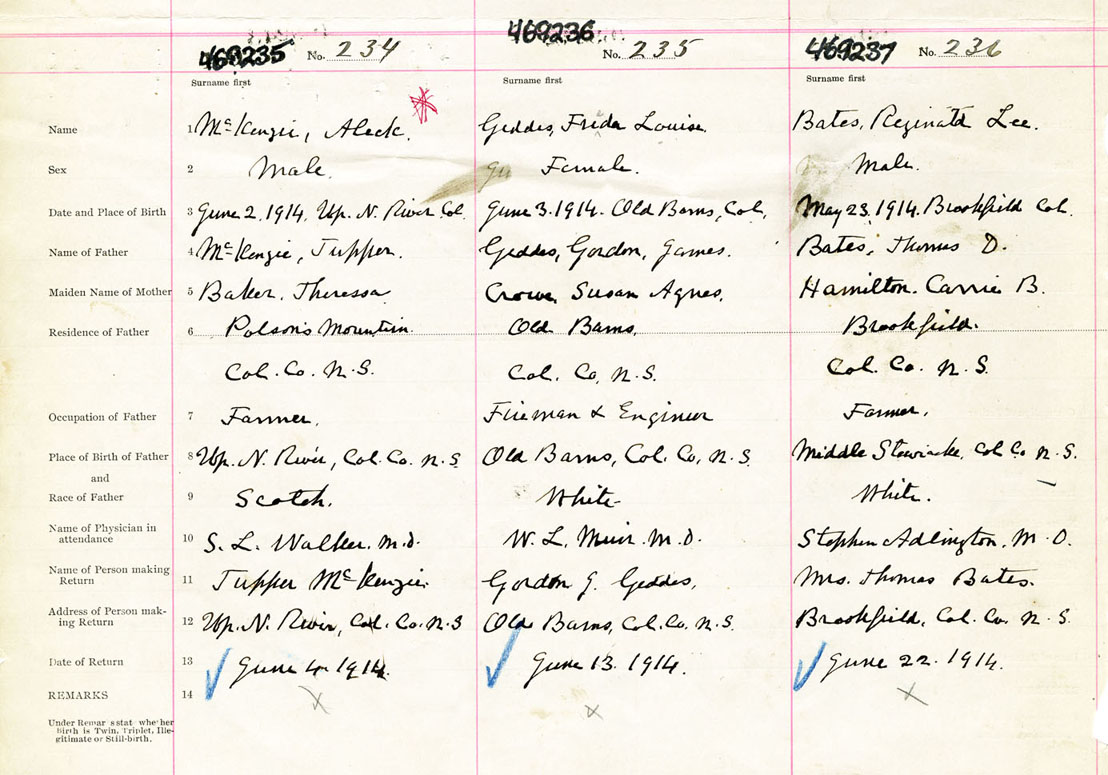 469235 No. 234
469236 No. 235
469237 No. 236
Surname first
Surname first
Surname first
Name 1 McKenzie, Aleck. Geddes, Frida Louise. Bates, Reginald Lee.
Sex 2 Male. Female. Male.
Date and Place of Birth 3 June 2. 1914, Up. N. River Col. June 3. 1914. Old Barns, Col, May 23, 1914. Brookfield Col.
Name of Father 4 McKenzie, Tupper. Geddes, Gordon, James. Bates, Thomas D.
Maiden Name of Mother 5 Baker, Theressa Crowe, Susan Agnes, Hamilton. Carrie B.
Residence of Father 6 Polsons Mountain Old Barns, Brookfield.
Col. Co. N.S. Col. Co, N.S. Col. Co. N.S.
Occupation of Father 7 Farmer. Fireman & Engineer Farmer,
Place of Birth of Father 8 Up. N. River, Col. Co. N.S. Old Barns, Col. Co, N.S. Middle Stewiacke, Col Co N.S.
and
Race of Father 9 Scotch. White White.
Name of Physician in
attendance 10 S. L. Walker. M.D. W. L. Muir. M.D. Stephen Adlington, M.D.
Name of Person making
Return 11 Tupper McKenzie. Gordon J. Geddes, Mrs. Thomas Bates.
Address of Person mak-
ing Return 12 Up. N. River, Col. Co. N.S Old Barns, Col. Co, N.S. Brookfield, Col. Co. N.S.
Date of Return 13 June 4. 1914. June 13. 1914. June 22. 1914.
REMARKS 14 x x x
Under Remarks stat whether
Birth is Twin, Triplet, Ille-
gitimate or Still-birth.